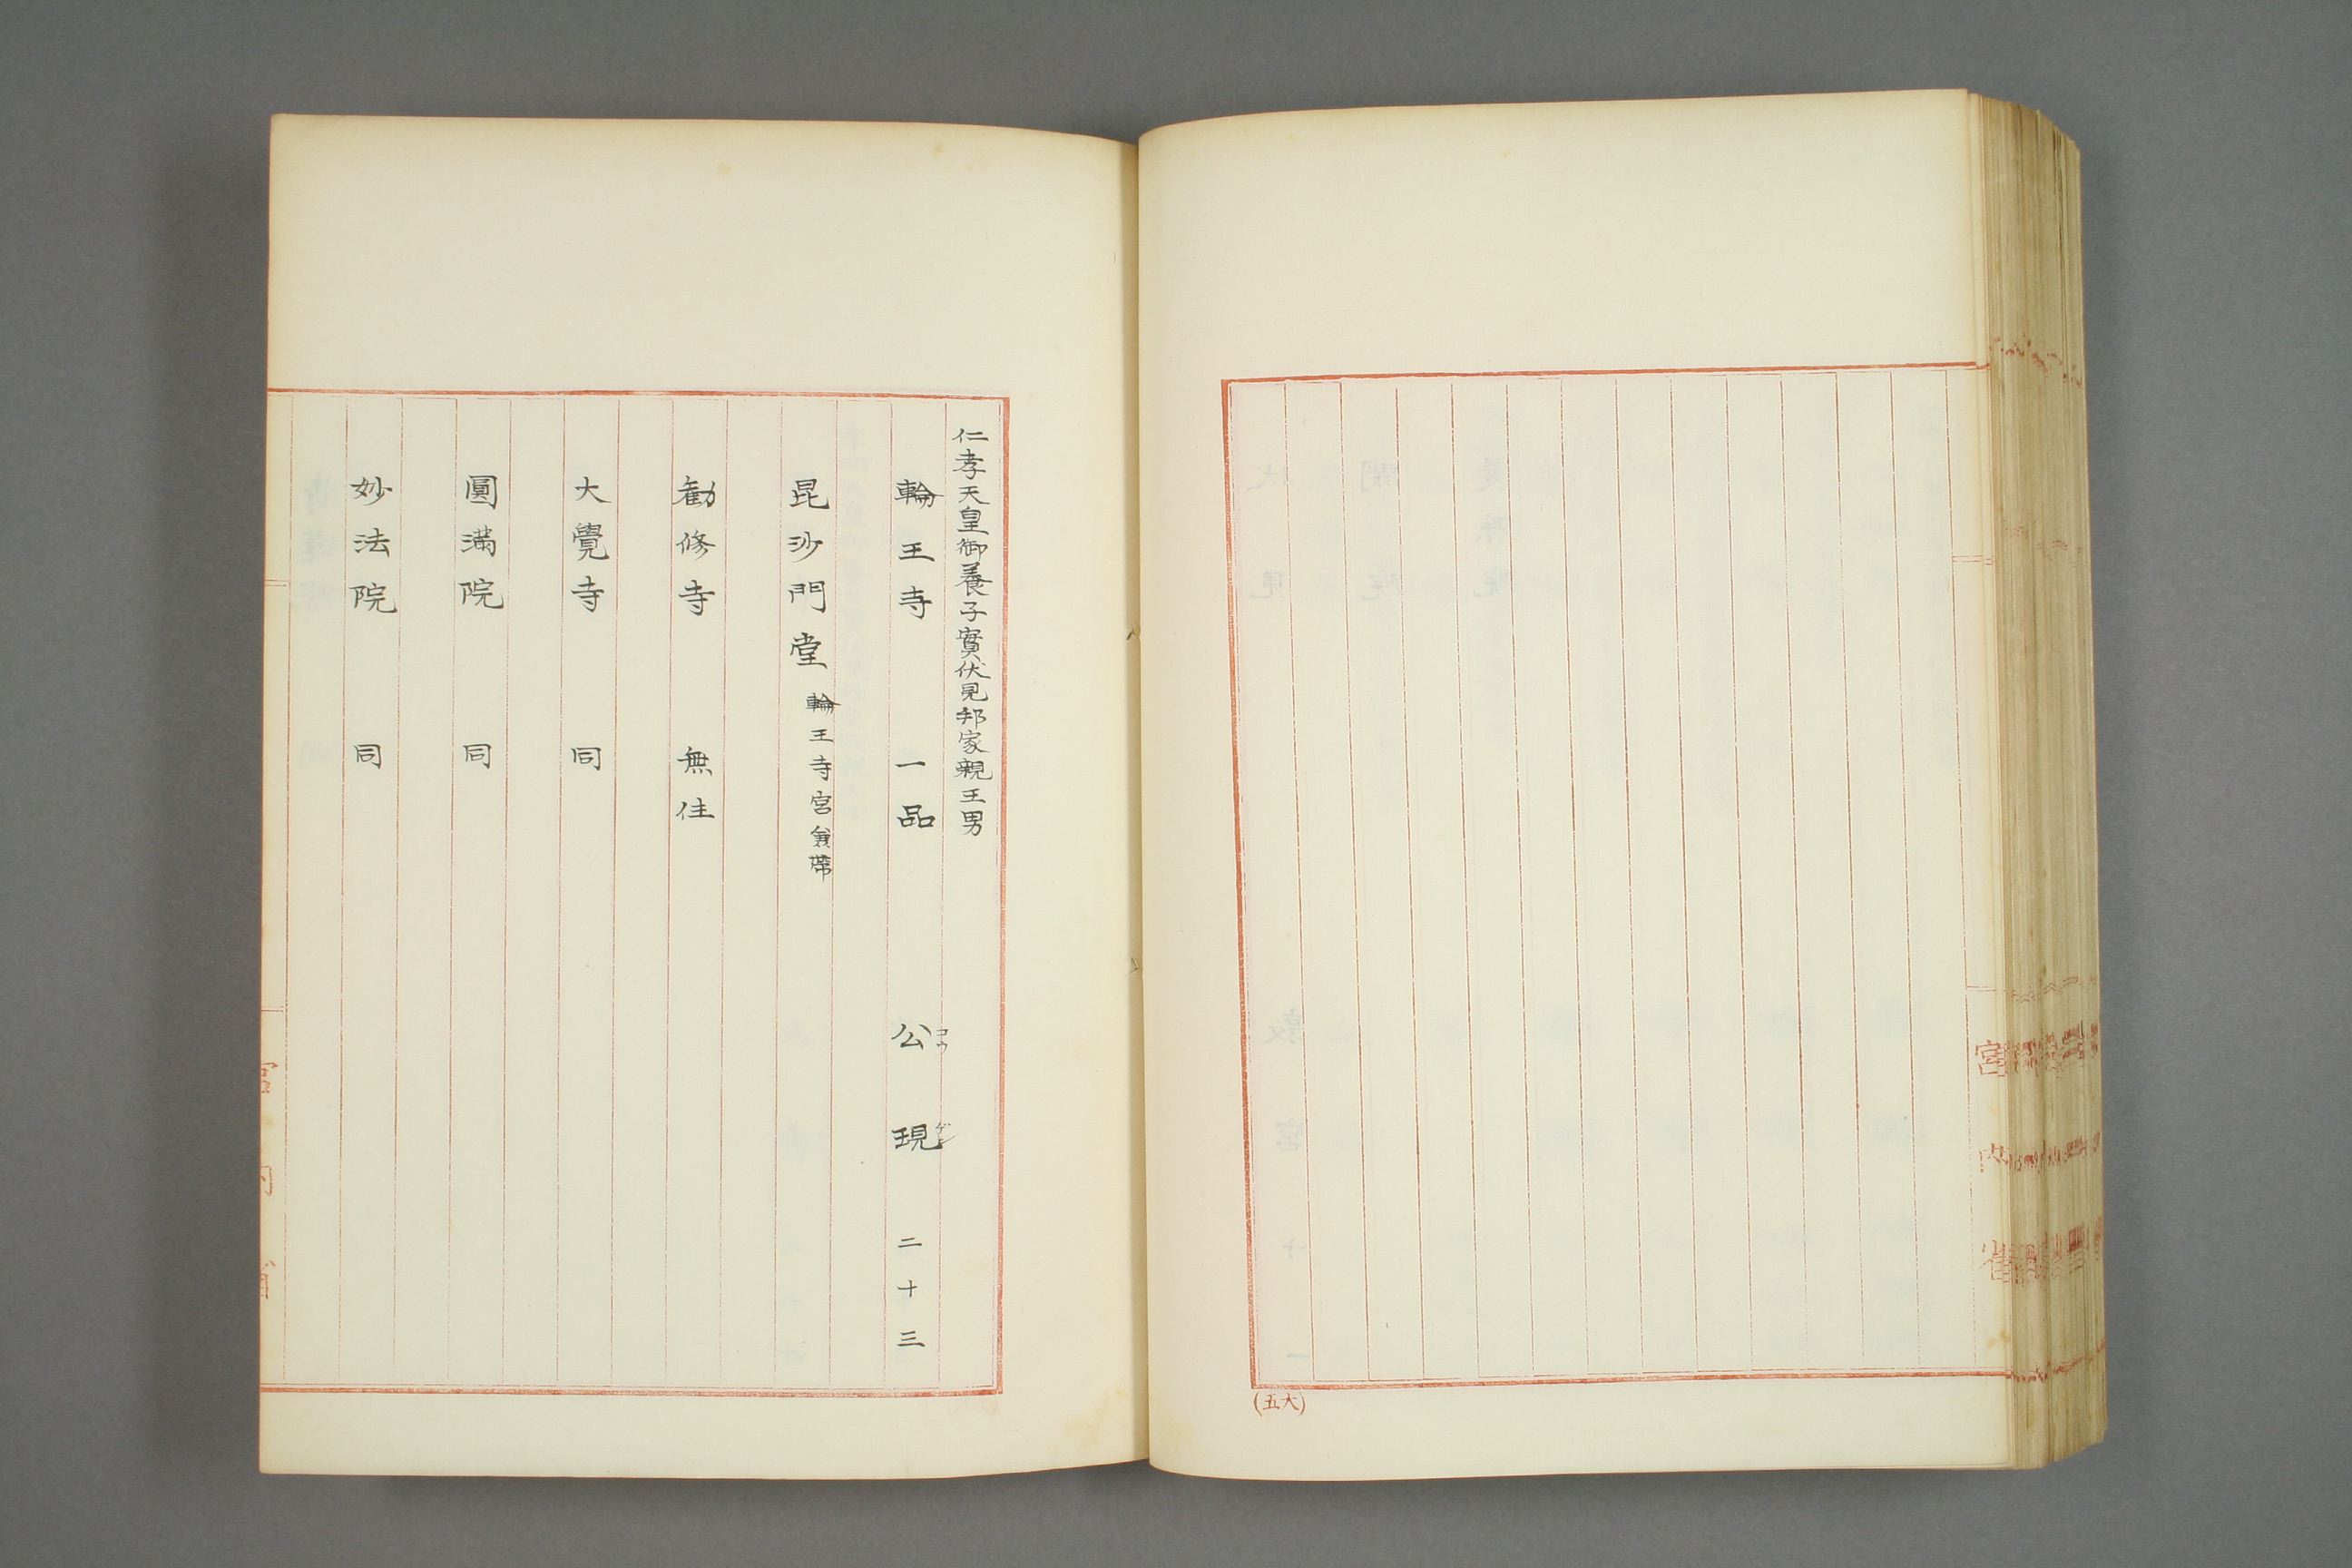 (五大)
仁孝天皇御養子實伏見邦家親王男
輪王寺 一品 公現 二十三
コウ ゲン
昆沙門堂 輪王寺宮兼帶
勸修寺 無住
大覺寺 同
圓滿院 同
妙法院 同
宮内省